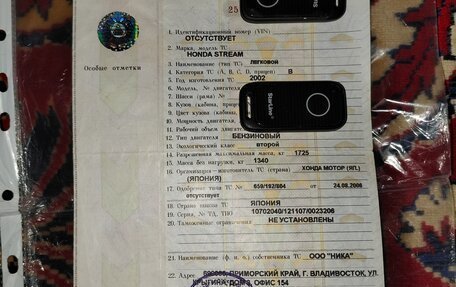 25
StarLine
1. Идентификационный номер (VIN)
ОТСУТСТВУЕТ
2. Марка, модель ТС
HONDA STREAM
Особые отметки
3. Наименование (тип ТС) легковой
4. Категория ТС (А, В, С, D, прицеп) В
5. Год изготовления ТС 2002
6. Модель, № двигателя
7. Шасси (рама) №
8. Кузов (кабина, прицеп)
9. Цвет кузова (кабины,
10. Мощность двигателя,
11. Рабочий объем двигателя
StarLine
12. Тип двигателя БЕНЗИНОВЫЙ
13. Экологический класс второй
14. Разрешенная максимальная масса, кг 1725
15. Масса без нагрузки, кг 1340
16. Организация—изготовитель ТС (страна) ХОНДА МОТОР (ЯП)
(ЯПОНИЯ)
17. Одобрение типа ТС № 659/192/864 от 24.08.2006
18. Страна вывоза ТС ЯПОНИЯ
19. Серия, № ТД, ТПО 10702040/121107/0023206
20. Таможенные ограничения НЕ УСТАНОВЛЕНЫ
21. Наименование (ф. и. о.) собственника ТС ООО "НИКА"
22. Адрес ПРИМОРСКИЙ КРАЙ, Г. ВЛАДИВОСТОК, УЛ.
ОФИС 154